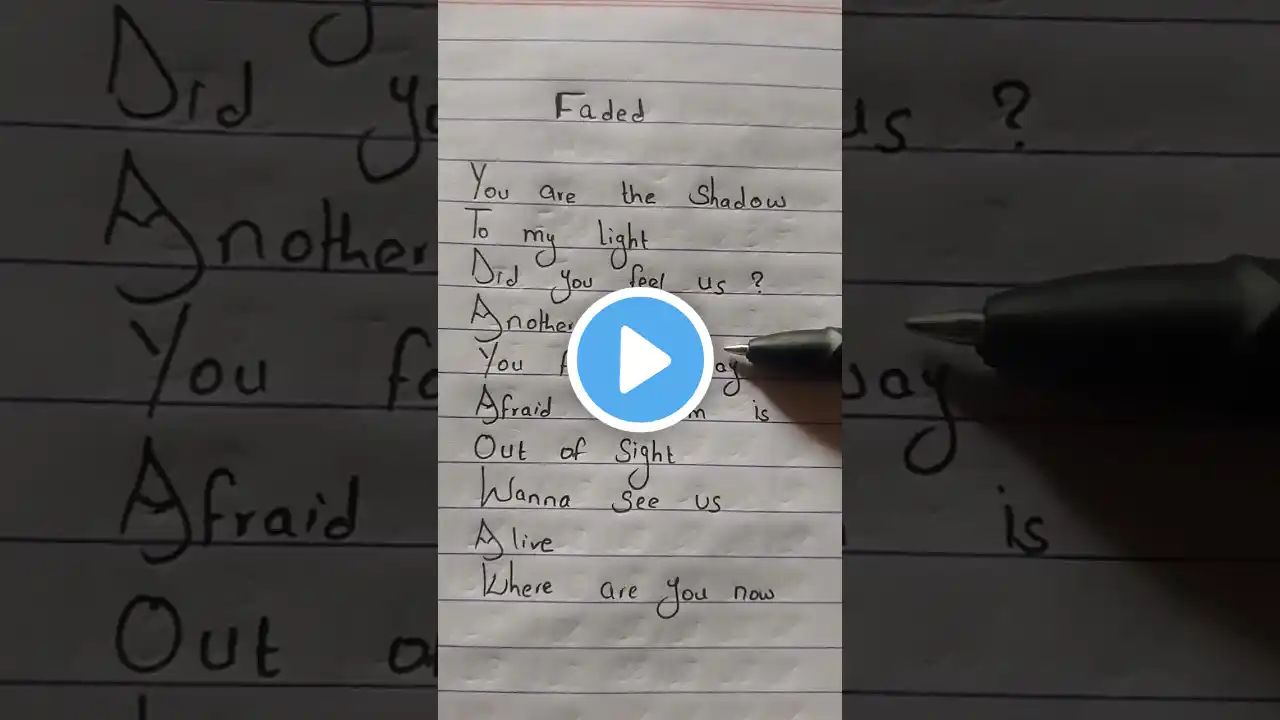 Faded
You are the Shadow
To my light
Did you feel us ?
Another
You
Afraid is
Out of Sight
Wanna See us
Alive
Where are you now